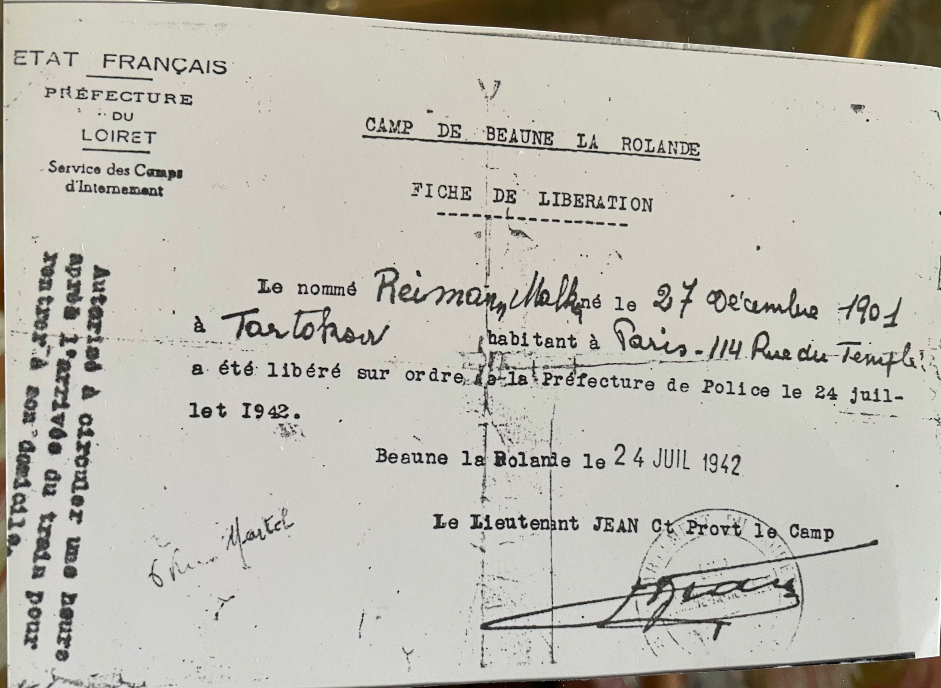 ETAT FRANÇAIS
PRÉFECTURE
DU
LOIRET
Service des Camps
d'Internement
CAMP DE BEAUNE LA ROLANDE
FICHE DE LIBERATION
Le nommé Reiman, Malka né le 27 Décembre 1901
à Tartokow habitant à Paris - 114 Rue du Temple
a été libéré sur ordre de la Préfecture de Police le 24 juil-
let I942.
Beaune la Rolande le 24 JUIL 1942
Le Lieutenant JEAN Ct Provt le Camp
Autorisé à circuler une heure
après l'arrivée du train pour
rentrer à son domicile.
6 rue Martel